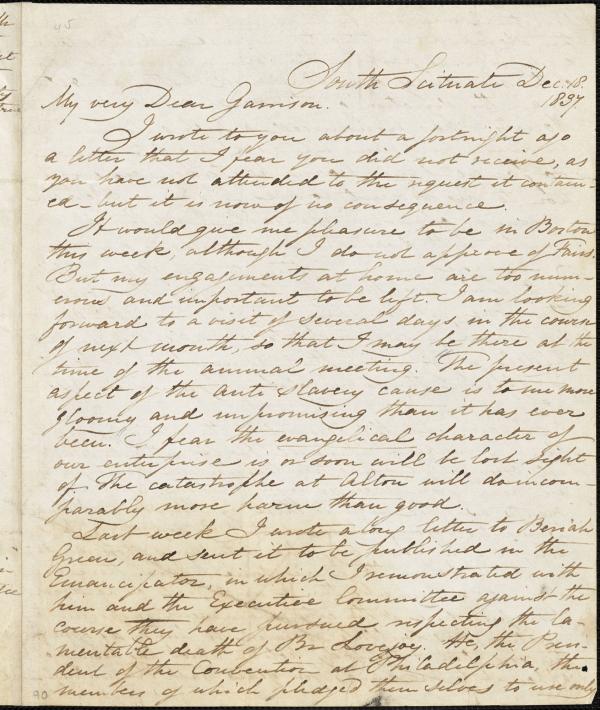 45
South Scituate Dec. 18.
1837.
My very Dear Garrison.
I wrote to you about a fortnight ago
a letter that I fear you did not receive, as
you have not attended to the request it contain-
ed - but it is now of no consequence.
It would give me pleasure to be in Boston
this week, although I do not approve of Fairs.
But my engagements at home are too num-
erous and important to be left. I am looking
forward to a visit of several days in the course
of next month, so that I may be there at the
time of the annual meeting. The present
aspect of the anti slavery cause is to me more
gloomy and unpromising than it has ever
been. I fear the evangelical character of
our enterprise is or soon will be lost sight
of. The catastrophe at Alton will do incom-
parably more harm than good.
Last week I wrote a long letter to Beriah
Green, and sent it to be published in the
Emancipator, in which I remonstrated with
him and the Executive Committee against the
course they have pursued respecting the la-
mentable death of Br Lovejoy. He, the Presi-
dent of the Convention at Philadelphia, the
members of which pledged themselves to use only
90